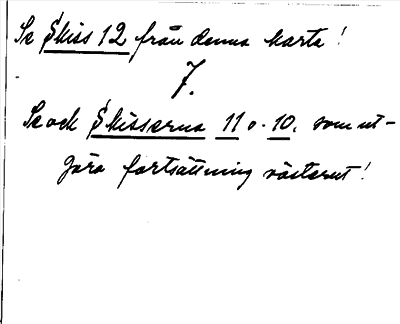 Se Skiss 12 från denna karta!
7.
Se och Skisserna 11 o. 10. som ut-
göra fortsättning västerut!